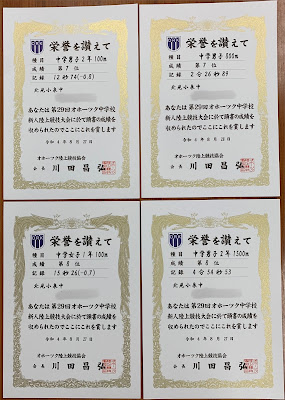 栄誉を讃えて
種目 中学男子2年100m
成績 第7位
記録 12秒74(-0.8)
北見小泉中
あなたは第29回オホーツク中学校
新人陸上競技大会に於て頭書の成績を
収められたのでここにこれを賞します
令和4年8月27日
オホーツク陸上競技協会
会長 川田昌弘
栄誉を讃えて
種目 中学男子800m
成績 第7位
記録 2分26秒89
北見小泉中
あなたは第29回オホーツク中学校
新人陸上競技大会に於て頭書の成績を
収められたのでここにこれを賞します
令和4年8月27日
オホーツク陸上競技協会
会長 川田昌弘
栄誉を讃えて
種目 中学女子1年100m
成績 第8位
記録 15秒26(-0.7)
北見小泉中
あなたは第29回オホーツク中学校
新人陸上競技大会に於て頭書の成績を
収められたのでここにこれを賞します
令和4年8月27日
オホーツク陸上競技協会
会長 川田昌弘
栄誉を讃えて
種目 中学男子2年1500m
成績 第8位
記録 4分54秒53
北見小泉中
あなたは第29回オホーツク中学校
新人陸上競技大会に於て頭書の成績を
収められたのでここにこれを賞します
令和4年8月27日
オホーツク陸上競技協会
会長 川田昌弘